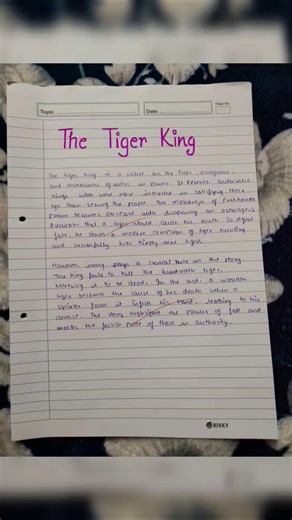 Topic
Date
Page No.
The Tiger King
The Tiger King is a satire on the pride, arrogance,
and of rulers in power. It presents autocratic
kings who were more interested in satisfying their
ego than serving the people. The Maharaja of Pratibanda
becomes obsessed with disproving an astrologer's
prediction that a tiger would cause his death. To defeat
fate, he starts a massive campaign of tiger hunting
and successfully kills ninety nine tigers.
However, irony plays a crucial role in the story.
The king fails to kill the hundredth tiger,
believing it to be dead. In the end, a wooden
tiger becomes the cause of his death when a
splinter from it infects his hand, leading to his
demise. The story highlights the power of fate and
mocks the foolish pride of those in authority.
RINKY